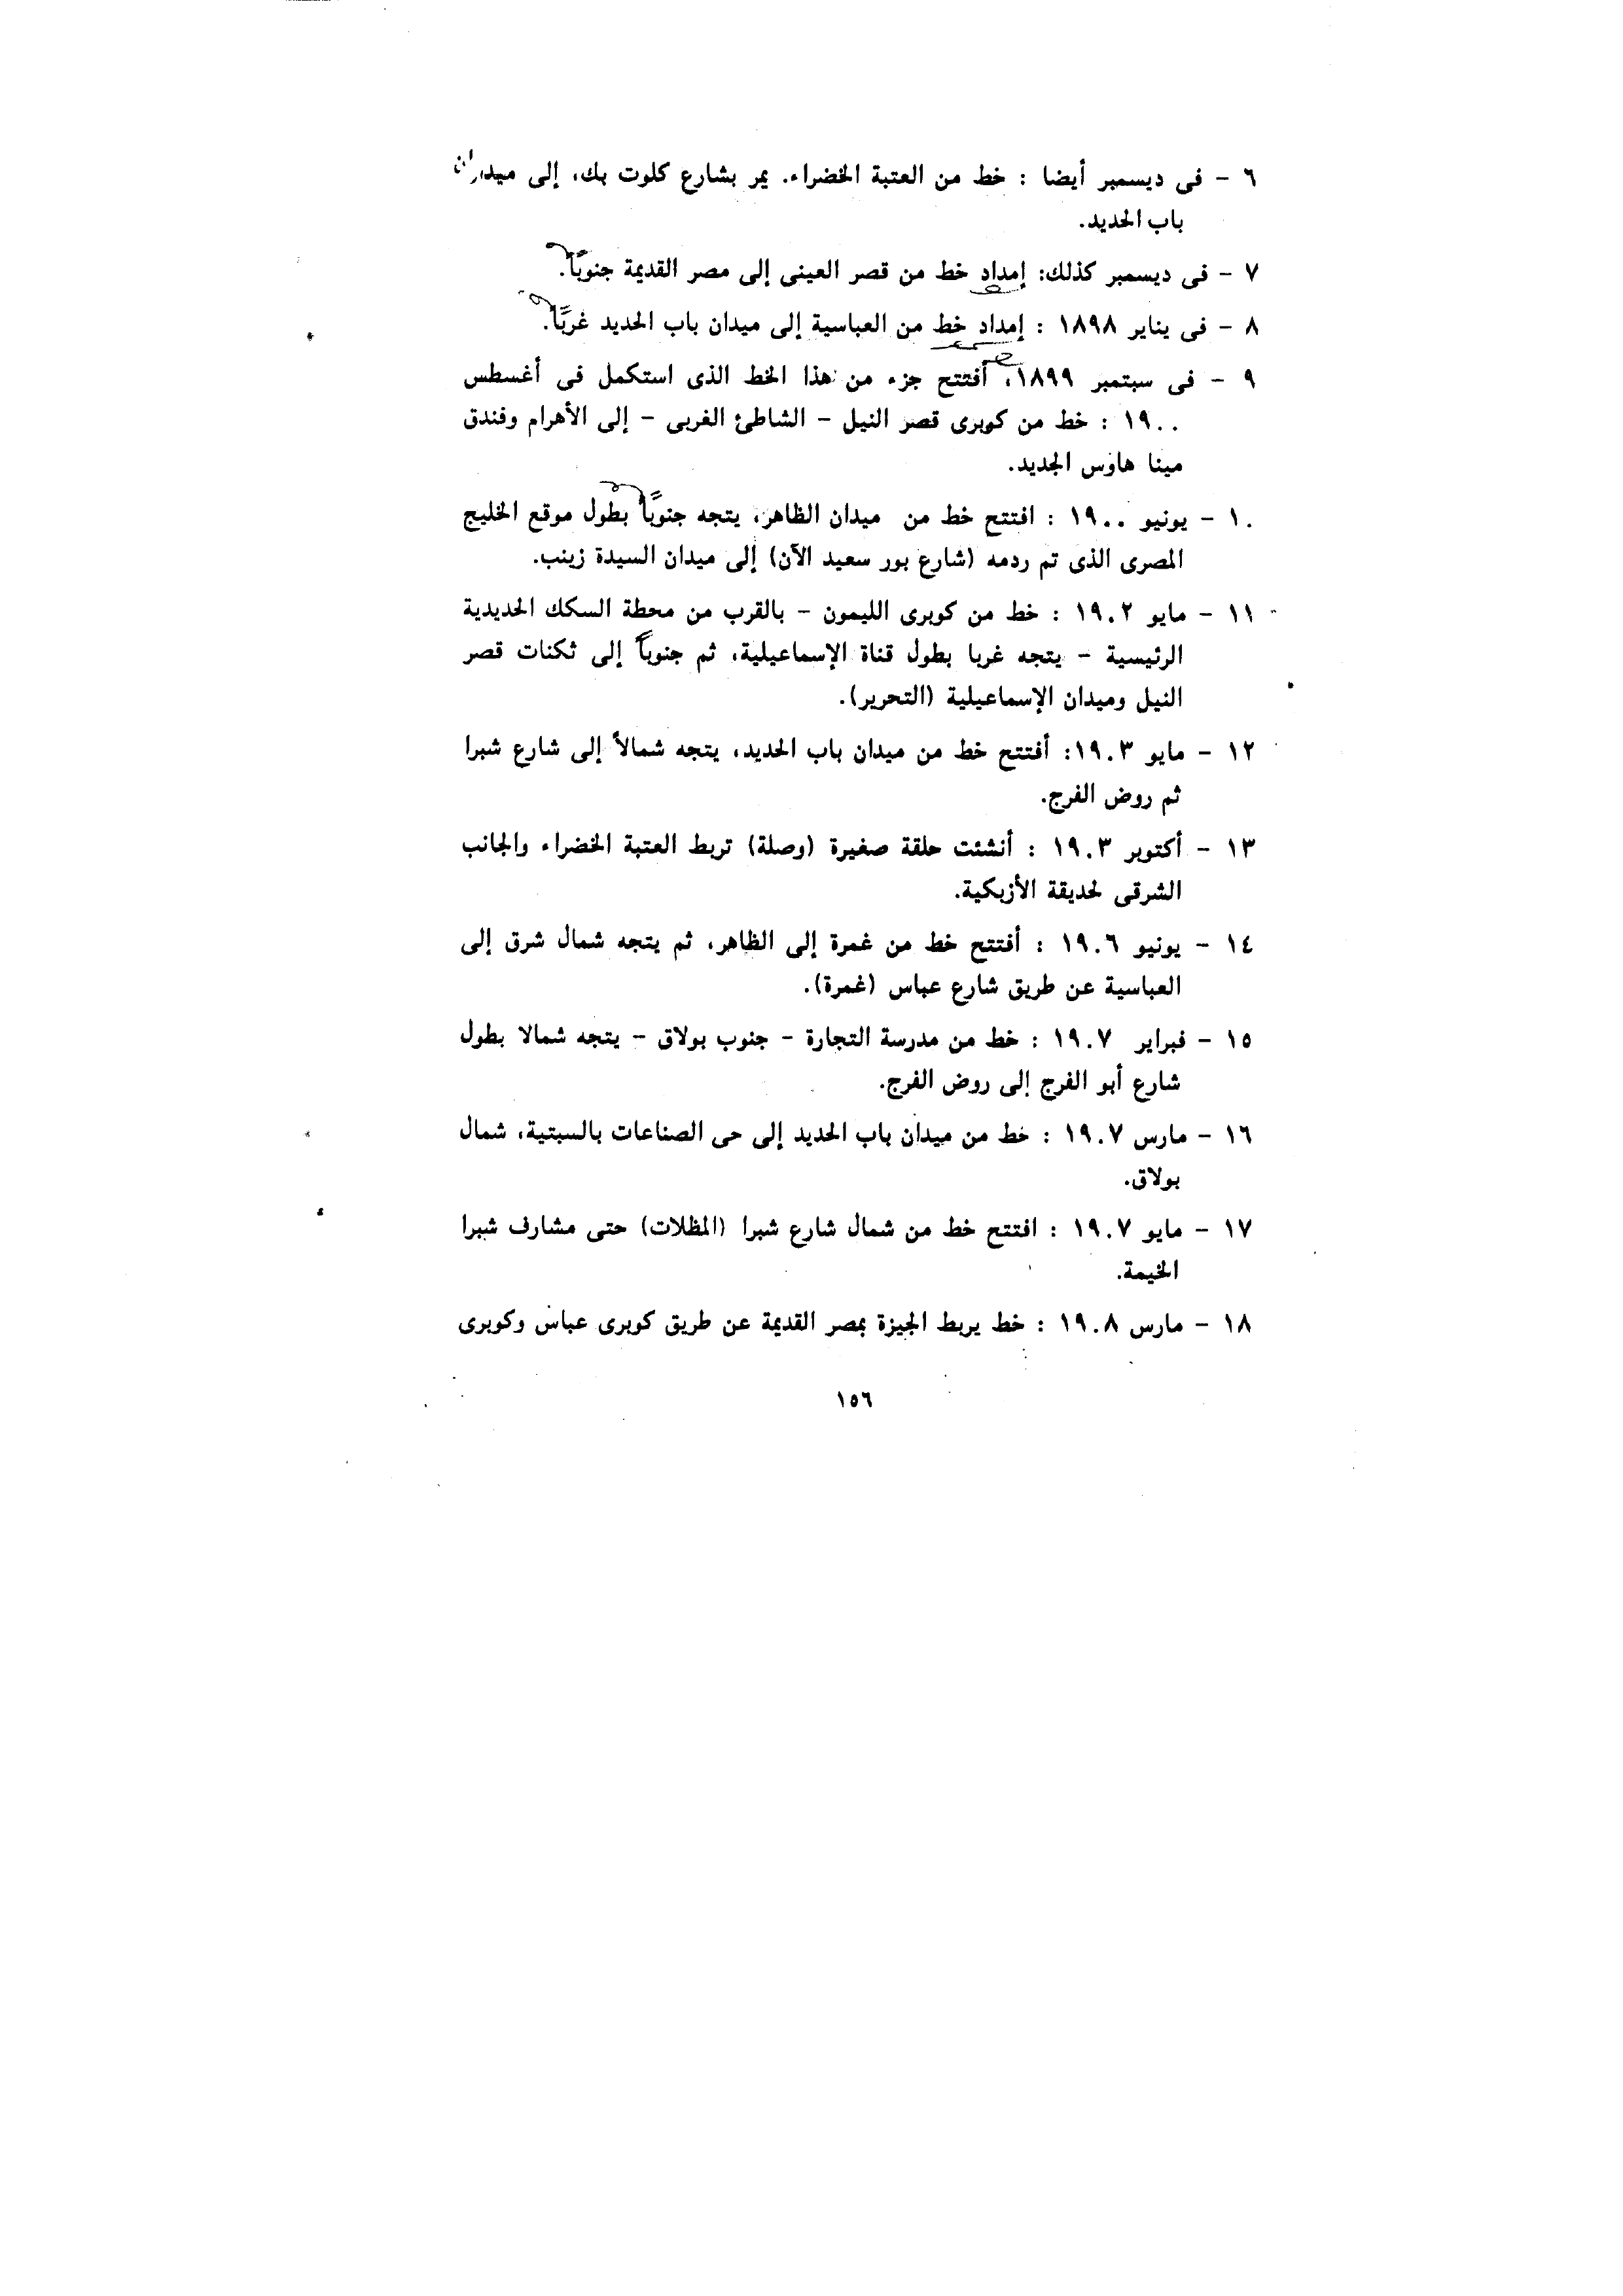 ٦ - فى ديسمبر أيضا : خط من العتبة الخضراء. يمر بشارع كلوت بك، إلى ميدان
باب الحديد.
٧ - فى ديسمبر كذلك: إمداد خط من قصر العينى إلى مصر القديمة جنوبًا.
٨ - فى يناير ١٨٩٨ : إمداد خط من العباسية إلى ميدان باب الحديد غربًا.
٩ - فى سبتمبر ١٨٩٩، أفتتح جزء من هذا الخط الذى استكمل فى أغسطس
١٩٠٠ : خط من كوبرى قصر النيل - الشاطئ الغربى - إلى الأهرام وفندق
مينا هاوس الجديد.
١٠ - يونيو ١٩٠٠ : افتتح خط من ميدان الظاهر، يتجه جنوبًا بطول موقع الخليج
المصرى الذى تم ردمه (شارع بور سعيد الآن) إلى ميدان السيدة زينب.
١١ - مايو ١٩٠٢ : خط من كوبرى الليمون - بالقرب من محطة السكك الحديدية
الرئيسية - يتجه غربا بطول قناة الإسماعيلية، ثم جنوباً إلى ثكنات قصر
النيل وميدان الإسماعيلية (التحرير).
١٢ - مايو ١٩٠٣: أفتتح خط من ميدان باب الحديد، يتجه شمالاً إلى شارع شبرا
ثم روض الفرج.
١٣ - أكتوبر ١٩٠٣ : أنشئت حلقة صغيرة (وصلة) تربط العتبة الخضراء والجانب
الشرقى لحديقة الأزبكية.
١٤ - يونيو ١٩٠٦ : أفتتح خط من غمرة إلى الظاهر، ثم يتجه شمال شرق إلى
العباسية عن طريق شارع عباس (غمرة).
١٥ - فبراير ١٩٠٧ : خط من مدرسة التجارة - جنوب بولاق - يتجه شمالا بطول
شارع أبو الفرج إلى روض الفرج.
١٦ - مارس ١٩٠٧ : خط من ميدان باب الحديد إلى حى الصناعات بالسبتية، شمال
بولاق.
١٧ - مايو ١٩٠٧ : افتتح خط من شمال شارع شبرا (المظلات) حتى مشارف شبرا
الخيمة.
١٨ - مارس ١٩٠٨ : خط يربط الجيزة بمصر القديمة عن طريق كوبرى عباس وكوبرى
١٥٦